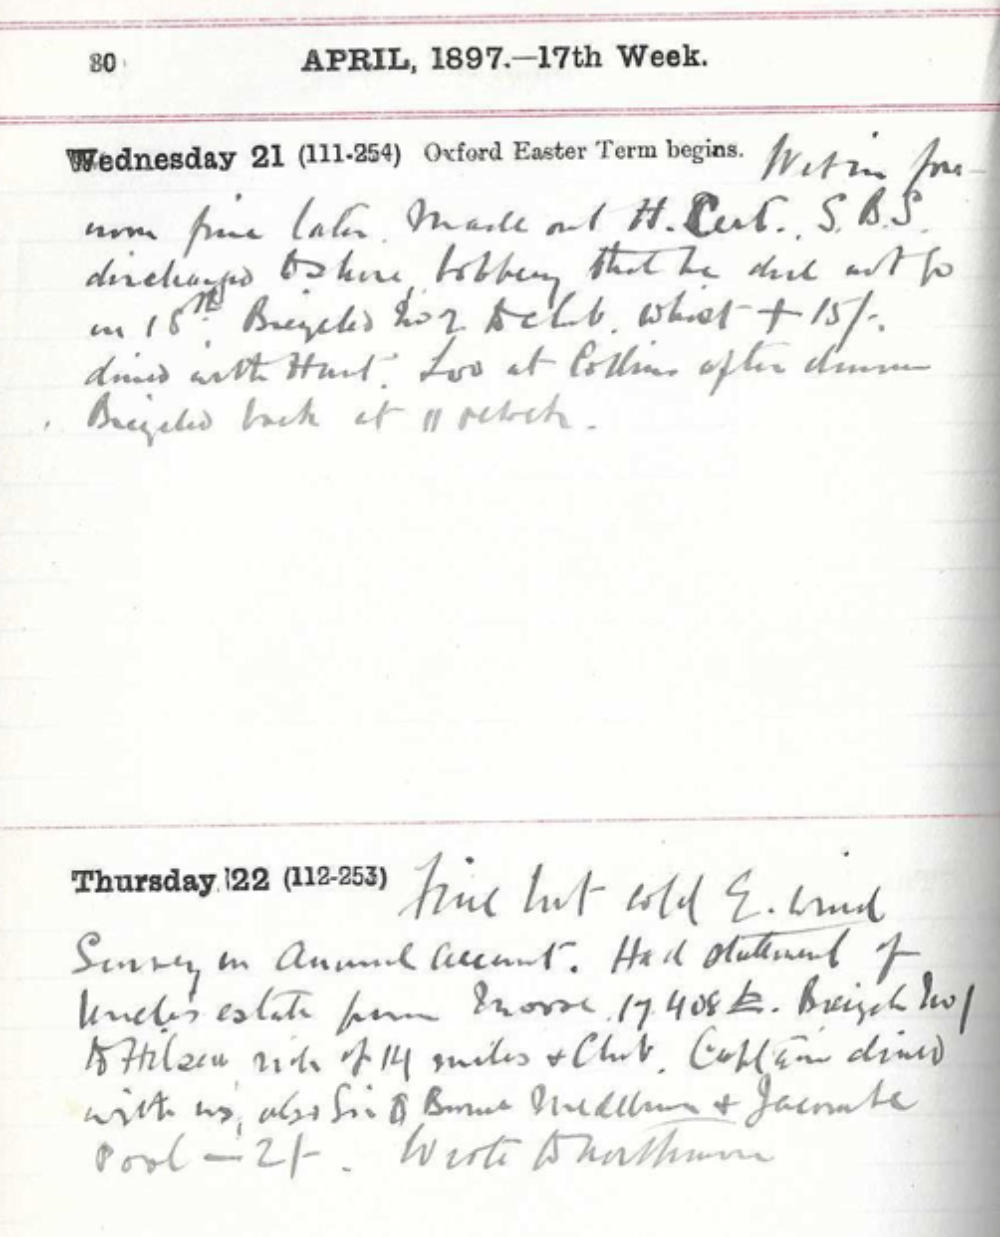 80 APRIL, 1897.—17th Week.
Wednesday 21 (111-254) Oxford Easter Term begins. Wet in fore-
noon fine later. Made out H. Cert. S.B.S.
discharged that he did not go
on 18th. Bicycled No 2 to club. whist + 15/-.
dined with Hunt. Loo at Collins after dinner
Bicycled back at 11 oclock.
Thursday 22 (112-253) Fine but cold E. wind
Survey on Annual account. Had statement of
Uncle's estate from 17.408 £. Bicycle No 1
to Hilsea ride of 14 miles & Club. Captain dined
with us, also Sir &
Pool — 2/-. Wrote to